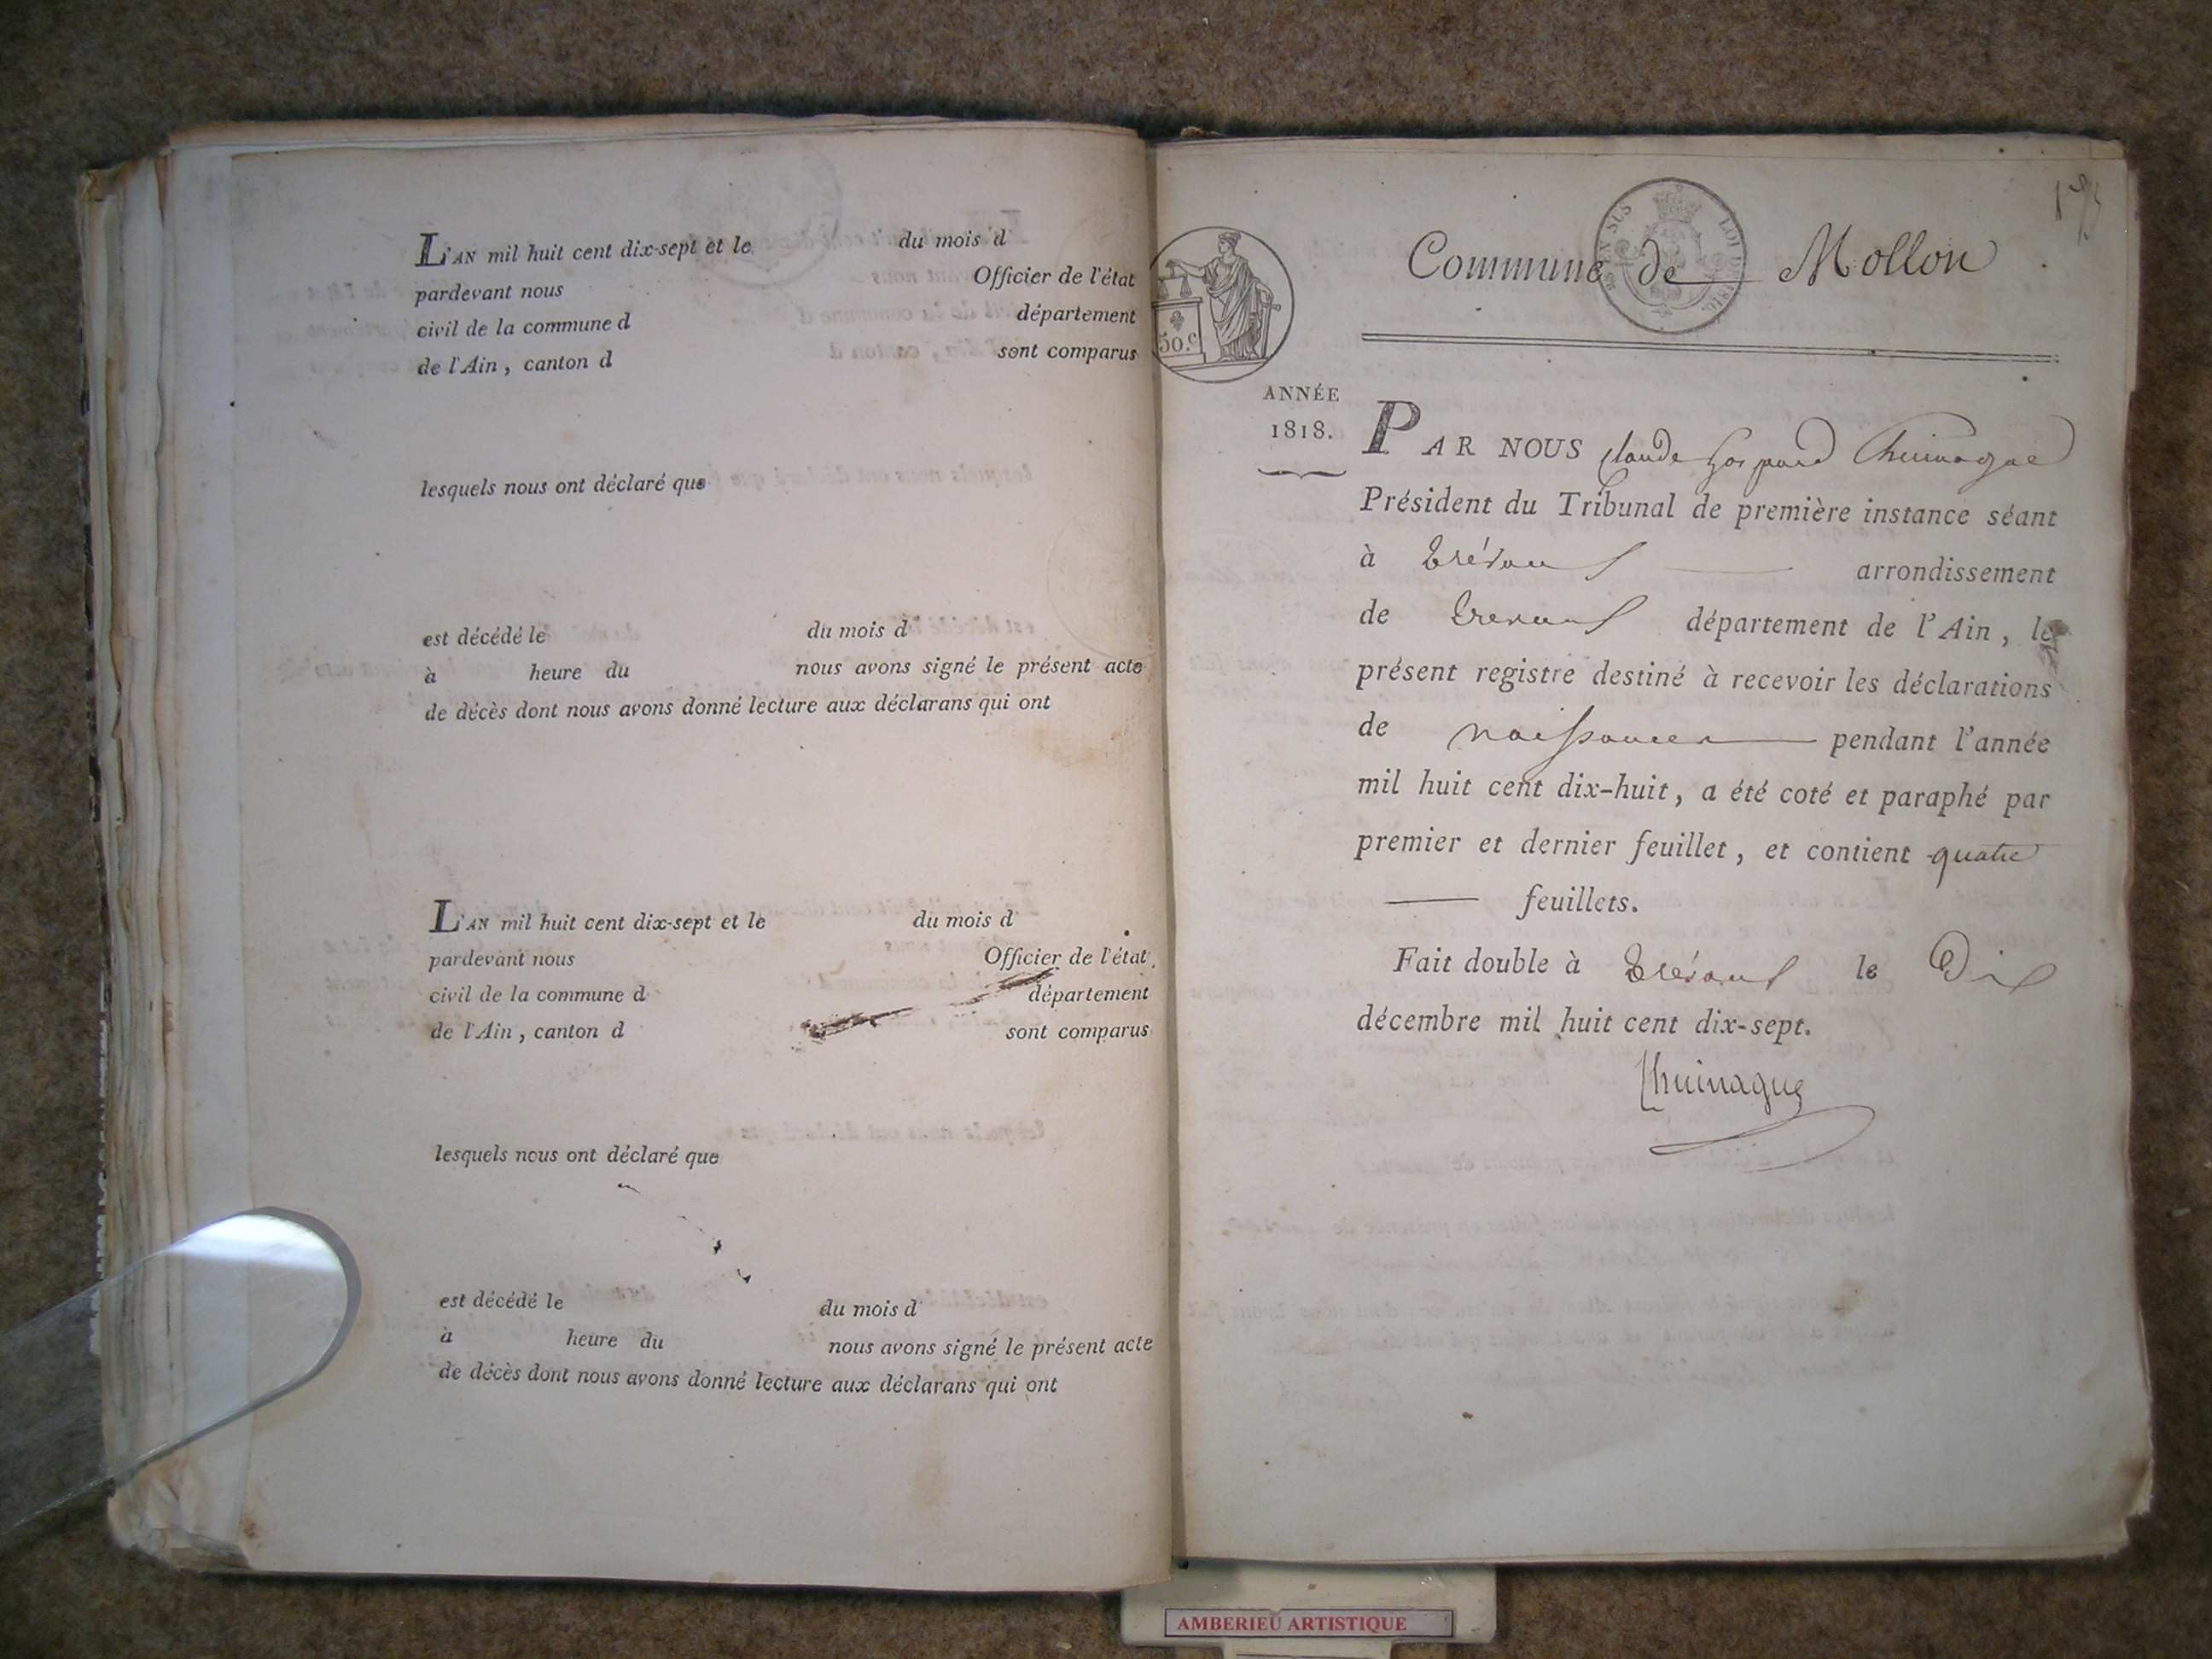 L'AN mil huit cent dix-sept et le du mois d
pardevant nous Officier de l'état
civil de la commune d département
de l'Ain, canton d sont comparus
lesquels nous ont déclaré que
est décédé le du mois d
à heure du nous avons signé le présent acte
de décès dont nous avons donné lecture aux déclarans qui ont
L'AN mil huit cent dix-sept et le du mois d
pardevant nous Officier de l'état
civil de la commune d département
de l'Ain, canton d sont comparus
lesquels nous ont déclaré que
est décédé le du mois d
à heure du nous avons signé le présent acte
de décès dont nous avons donné lecture aux déclarans qui ont
Commune de Mollon
50.c
ANNÉE
1818.
PAR NOUS Claude Gaspard Chuinague
Président du Tribunal de première instance séant
à Trévoux arrondissement
de Trevoux département de l'Ain, le
présent registre destiné à recevoir les déclarations
de naissances pendant l'année
mil huit cent dix-huit, a été coté et paraphé par
premier et dernier feuillet, et contient quatre
feuillets.
Fait double à Trévoux le Dix
décembre mil huit cent dix-sept.
Chuinague
AMBERIEU ARTISTIQUE